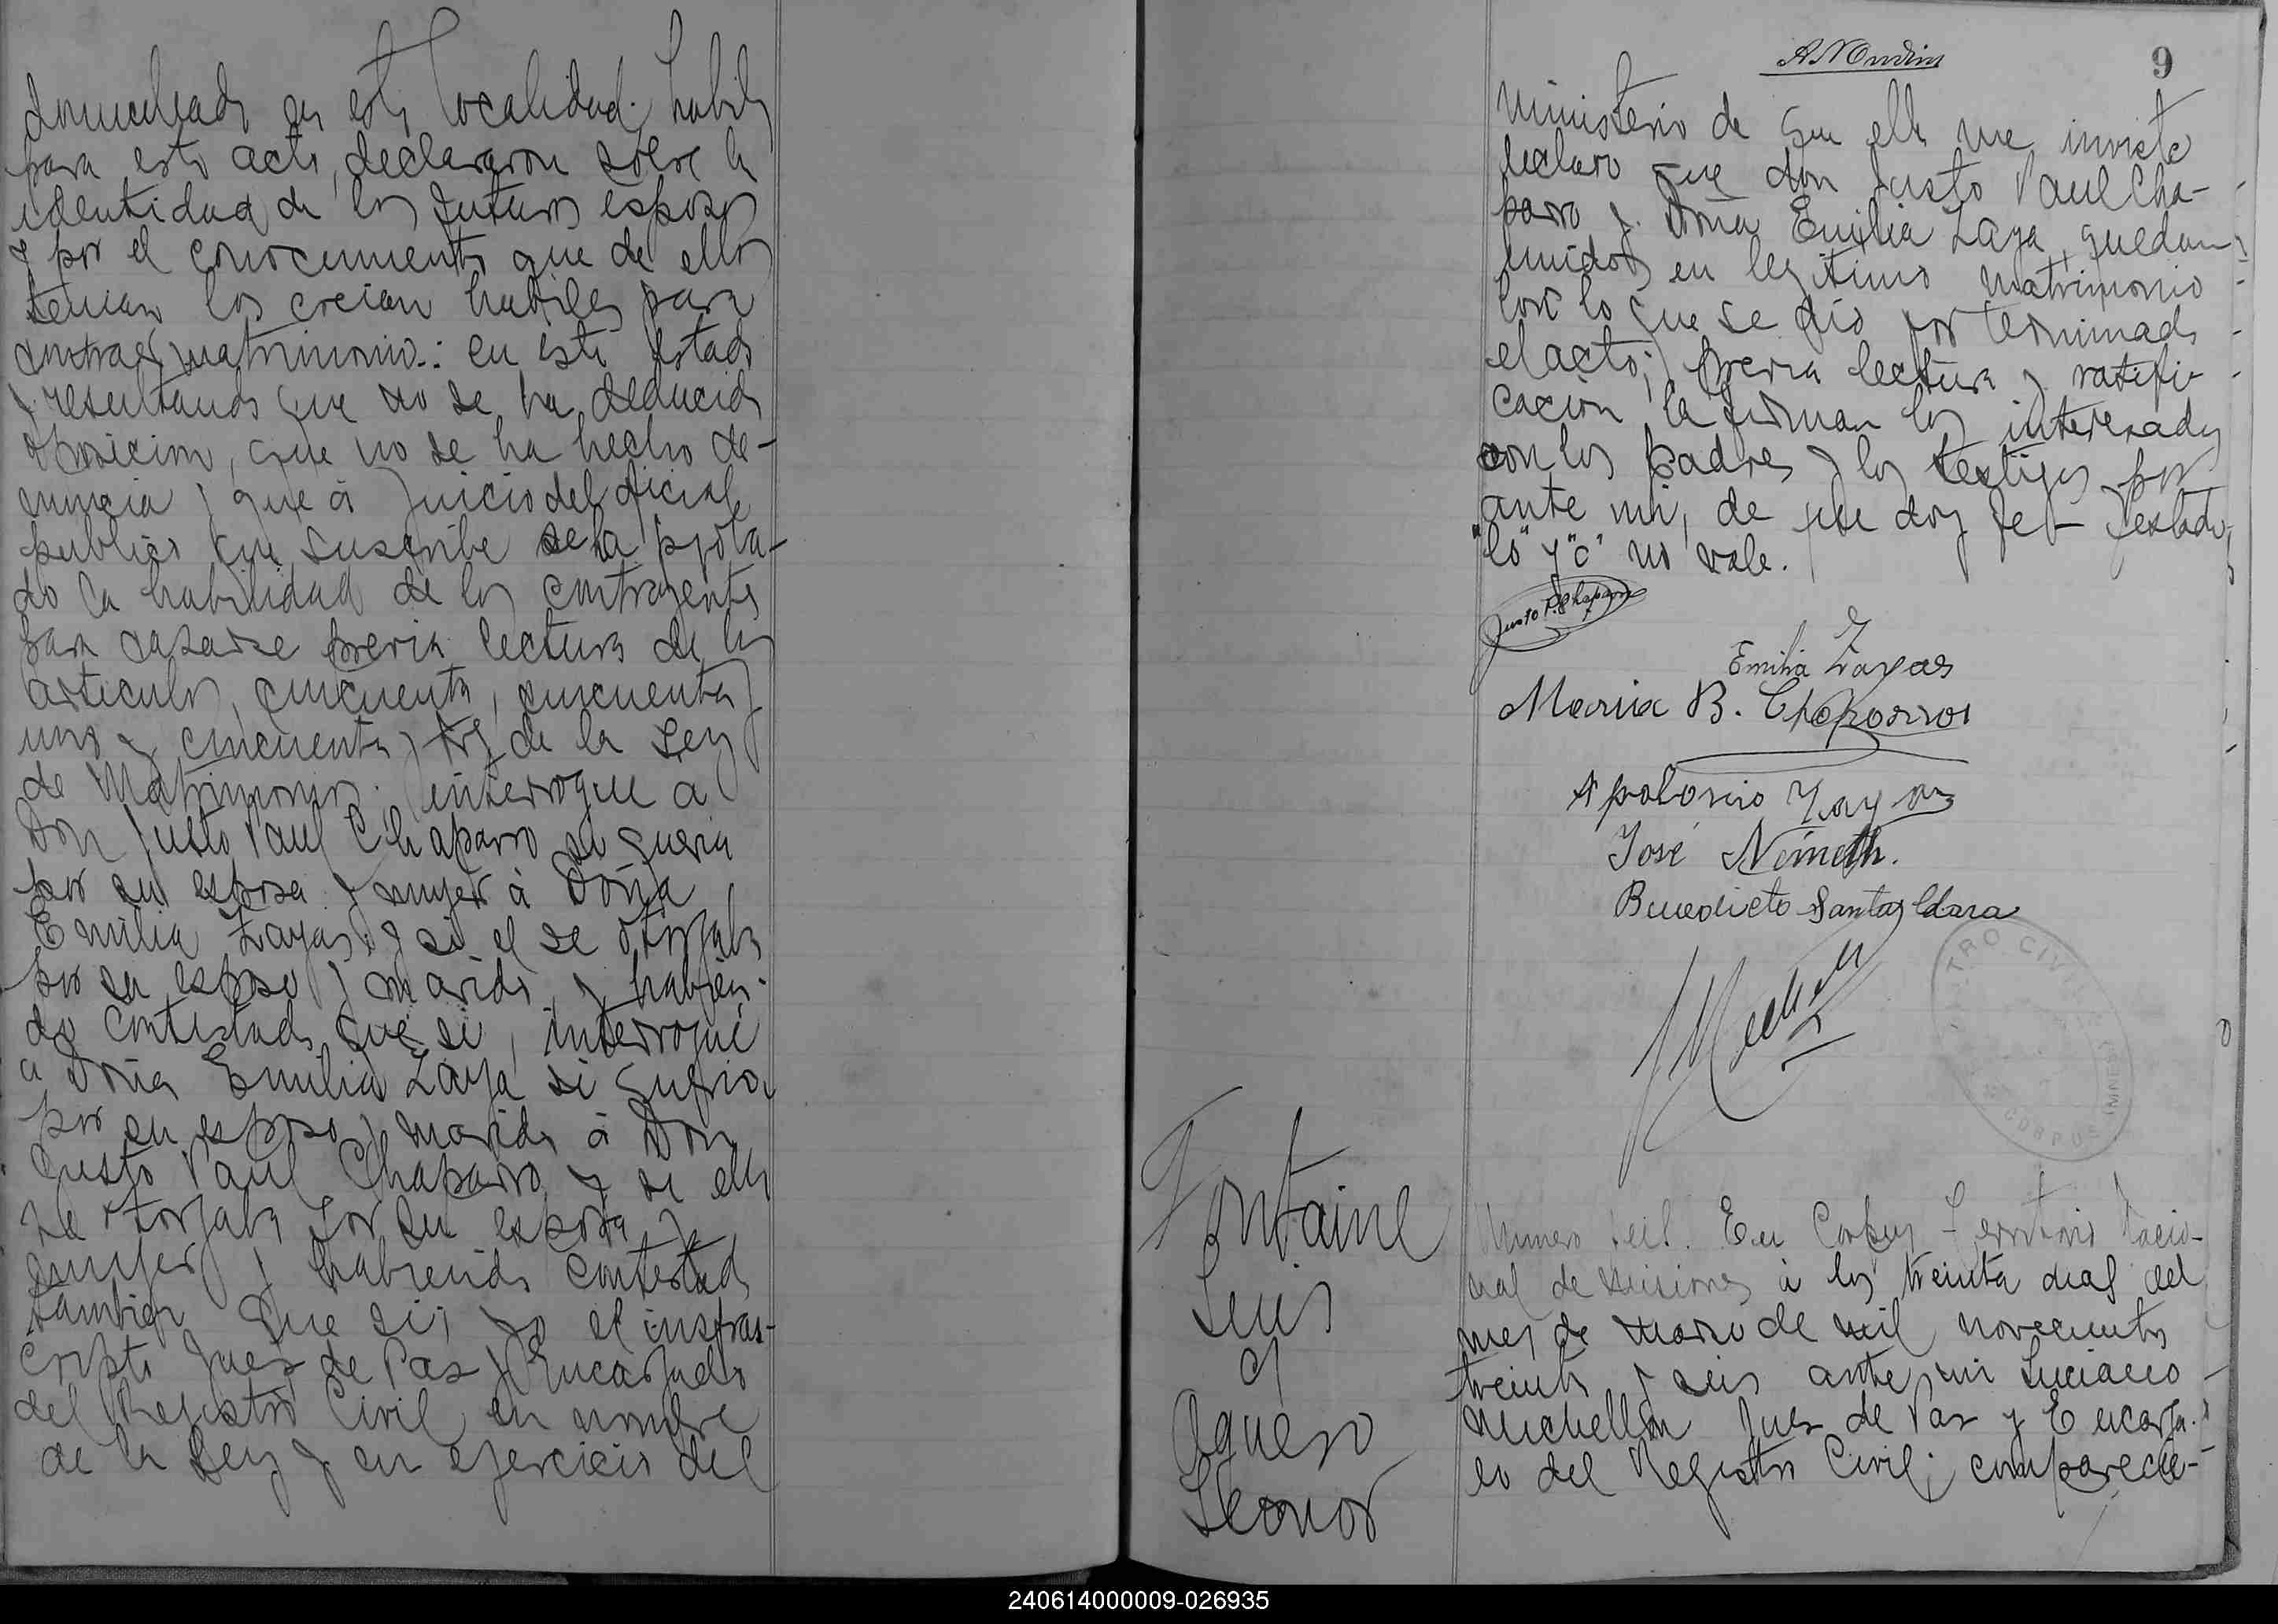 domiciliado en esta localidad, habil
para este acto, declararon sobre la
identidad de los futuros esposos
y por el conocimiento que de ellos
tenian los creian habiles para
contraer matrimonio: en este estado
y resultando que no se ha deducido
oposicion, que no se ha hecho de-
nuncia y que á juicio del oficial
publico que suscribe se ha proba-
do la habilidad de los contrayentes
para casarse previa lectura de los
articulos, cincuenta, cincuenta y
uno y cincuenta y tres de la Ley
de Matrimonio interrogue a
Don Justo Paul Chaparro si queria
por su esposa y mujer á Doña
Emilia Zayas y si el se otorgaba
por su esposo y marido, y habien-
do contestado que si, interrogué
a Doña Emilia Zaya si queria
por su esposo y marido á Don
Justo Paul Chaparro y si ella
se otorgaba por su esposa y
mujer y habiendo contestado
tambien que si; yo el infras-
cripto Juez de Paz y Encargado
del Registro Civil en nombre
de la Ley y en ejercicio del
9
ministerio de que ella me inviste
declaro que don Justo Paul Cha-
parro y Doña Emilia Zaya, quedan
unidos en legitimo matrimonio
con lo que se dió por terminado
el acto; previa lectura y ratifi-
cacion la firman los interesados
con los padres y los testigos por
ante mi, de que doy fe- Testado
"lo" y "o" no vale.
Justo P. Chaparro
Emilia Zayas
Maria B. Chaparro
Apolonio Zayas
José Németh.
Benedicto Santa Clara
Fontaine
Luis
c/
Aguero
Leonor
REGISTRO CIVIL
CORPUS (MNES)
Numero seis. En Corpus Territorio Nacio-
nal de Misiones á los treinta dias del
mes de marzo de mil novecientos
treinta y seis ante mi Luciano
Michellon Juez de Paz y Encarga-
do del Registro Civil; comparecie-
240614000009-026935